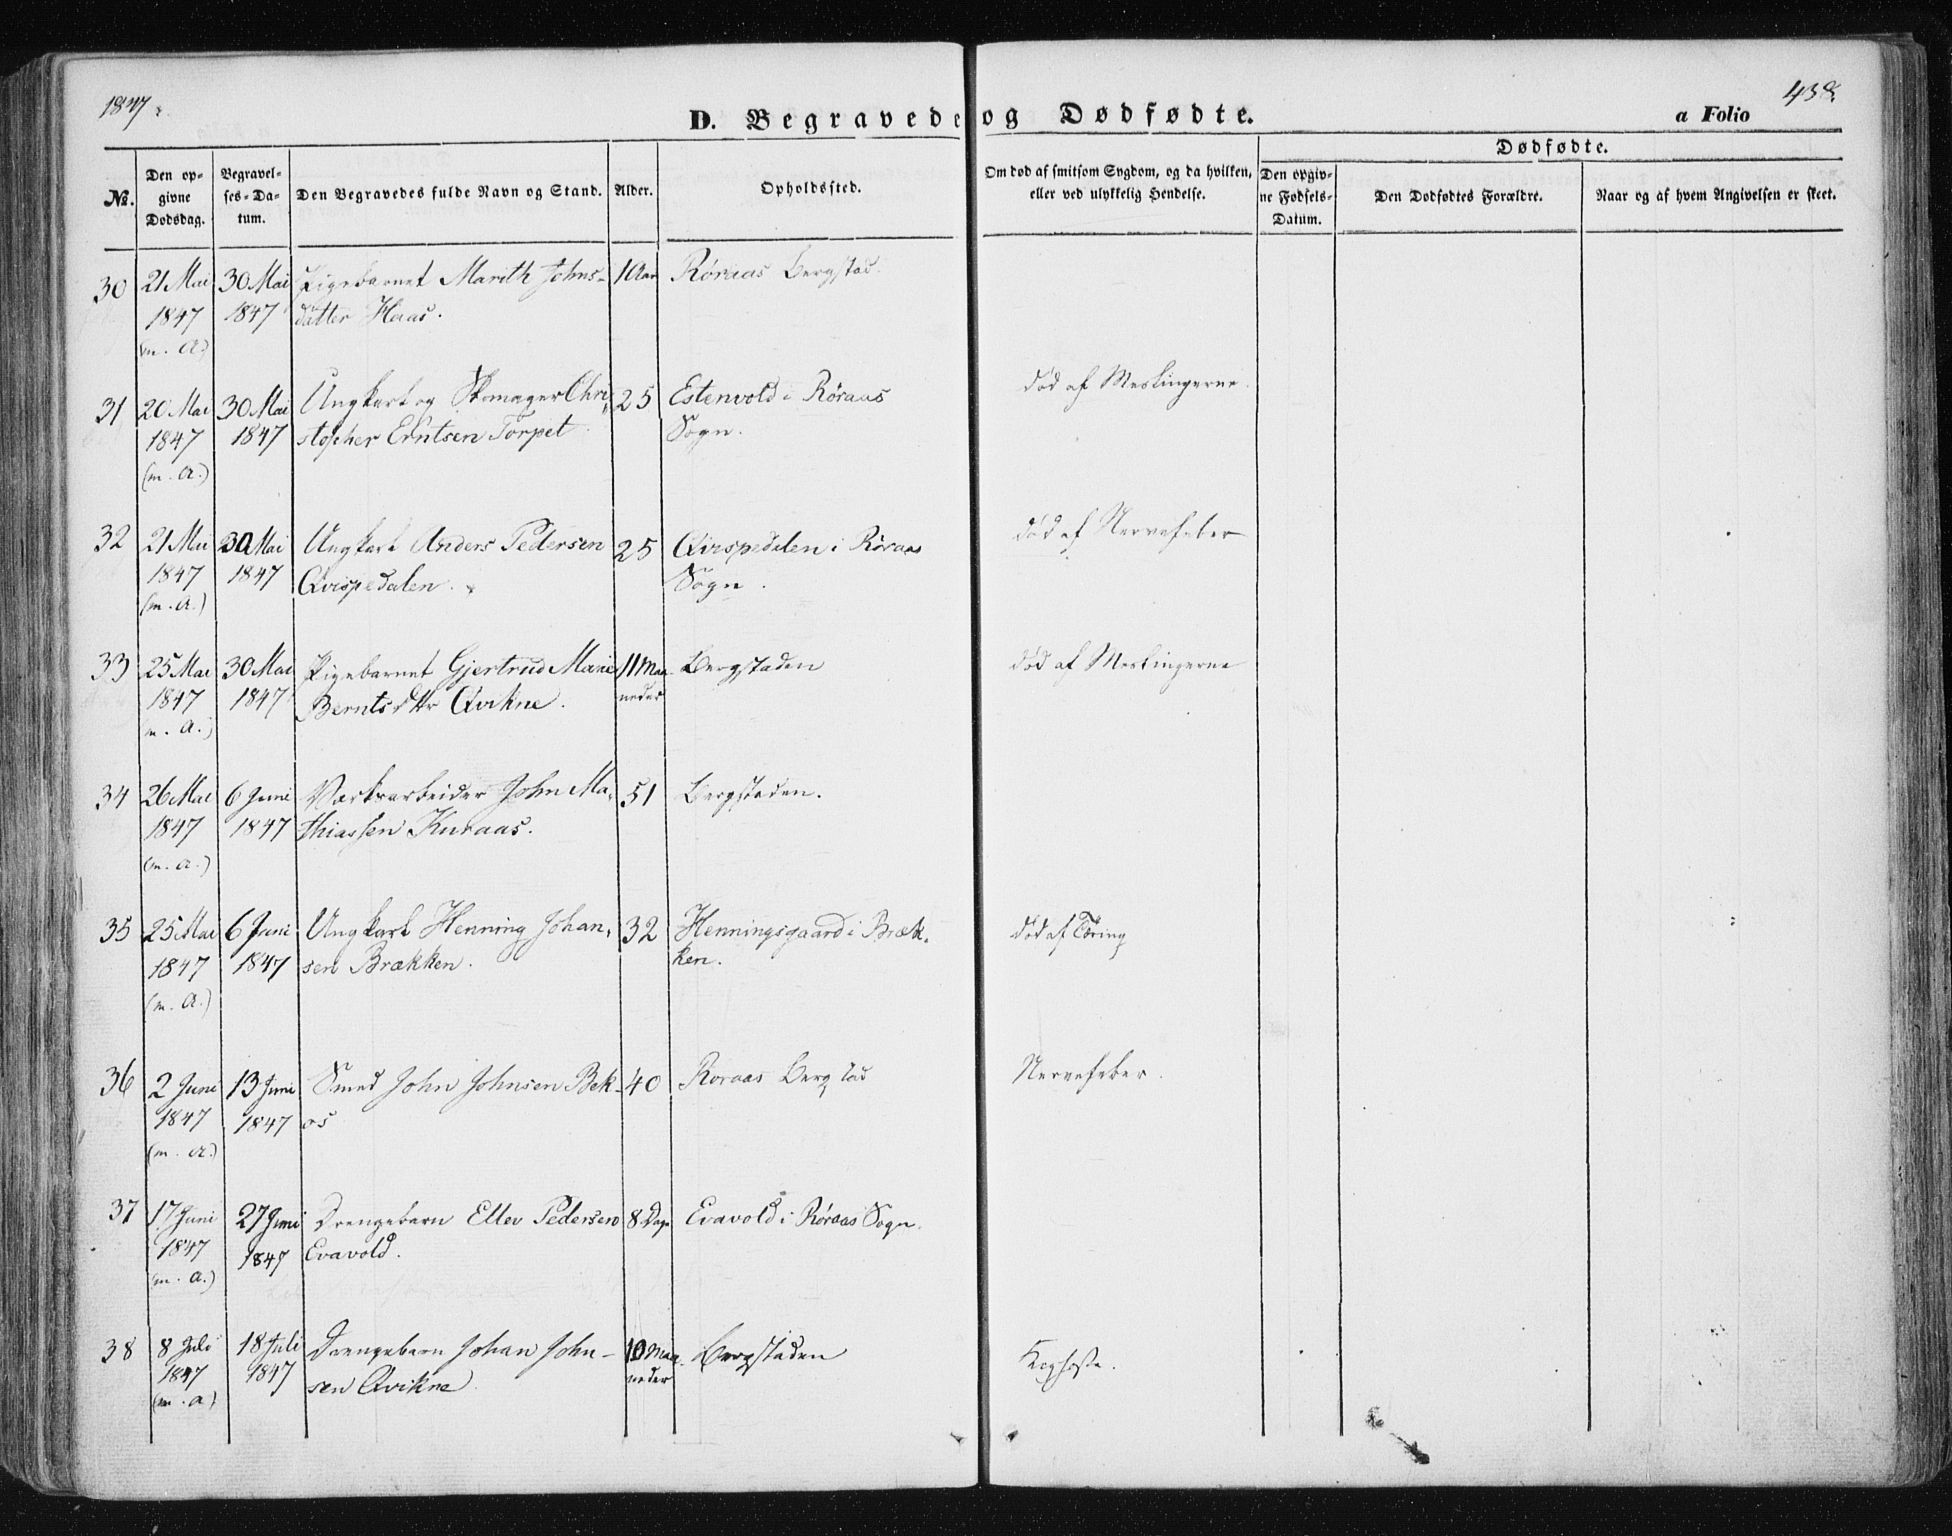 1847.
438.
D. Begravede og Dødfødte.
a Folio
No.
Den opgivne Dødsdag.
Begravelses-Datum.
Den Begravedes fulde Navn og Stand.
Alder.
Opholdssted.
Om død af smitsom Sygdom, og da hvilken, eller ved ulykkelig Hendelse.
Dødfødte.
Den opgivne Fødsels-Datum.
Den Dødfødtes Forældre.
Naar og af hvem Angivelsen er skeet.
30 21 Mai 30 Mai Pigebarnet Marith Johns- 1 Aar Røraas Bergstad.
1847 1847 datter Haas.
(m. A.)
31 20 Mai 30 Mai Ungkarl og Skomager Chri- 25 Estenvold i Røraas død af Meslingerne.
1847 1847 stopher Erntsen Torpet Sogn.
(m. A.)
32 21 Mai 30 Mai Ungkarl Anders Pedersen 25 Qvispedalen i Røraas død af Nervefeber
1847 1847 Qvispedalen. Sogn.
(m. A.)
33 25 Mai 30 Mai Pigebarnet Gjertrud Marie 11 Maa- Bergstaden død af Meslingerne
1847 1847 Berntsdttr Qvikne. neder
(m. A.)
34 26 Mai 6 Juni Værksarbeider John Ma- 51 Bergstaden.
1847 1847 thiassen Kuraas.
(m. A.)
35 25 Mai 6 Juni Ungkarl Henning Johan- 32 Henningsgaard i Bræk- død af Tæring
1847 1847 sen Brækken. ken.
(m. A.)
36 2 Juni 13 Juni Smed John Johnsen Bek- 40 Roraas Bergstad Nervefeber.
1847 1847 os
(m. A.)
37 17 Juni 27 Juni Drengebarn Ellev Pedersen 8 Dage Evavold i Røraas Sogn.
1847 1847 Evavold.
(m. A.)
38 8 Juli 18 Juli Drengebarn Johan John- 10 Maa- Bergstaden Kighoste.
1847 1847 sen Qvikne neder
(m. A)